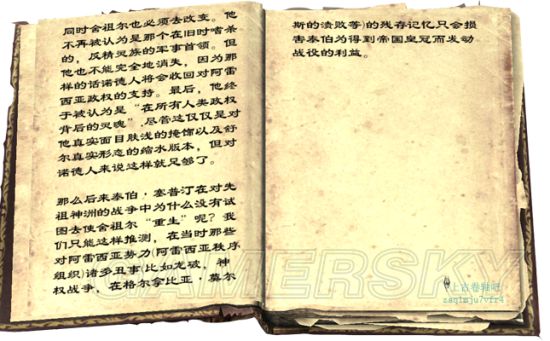 同时舍祖尔也必须去改变。他
不再被认为是那个在旧时嗜杀
的，反精灵族的军事首领。但
他也不能完全地消失，因为那
样的话诺德人将会收回对阿雷
西亚政权的支持。最后，他终
于被认为是“在所有人类政权
背后的灵魂”，尽管这仅仅是对
他真实面目肤浅的掩饰以及舒
尔真实形态的缩水版本，但对
诺德人来说这样就足够了。
那么后来泰伯·塞普汀在对先
祖神洲的战争中为什么没有试
图去使舍祖尔“重生”呢？我
们只能这样推测，在当时那些
对阿雷西亚势力(阿雷西亚秩序
组织)诸多丑事(比如龙破，神
权战争，在格尔拿比亚·莫尔
斯的溃败等)的残存记忆只会损
害泰伯为得到帝国皇冠而发动
战役的利益。
GAMERSKY
上古卷轴吧
zaqimju7vfr4